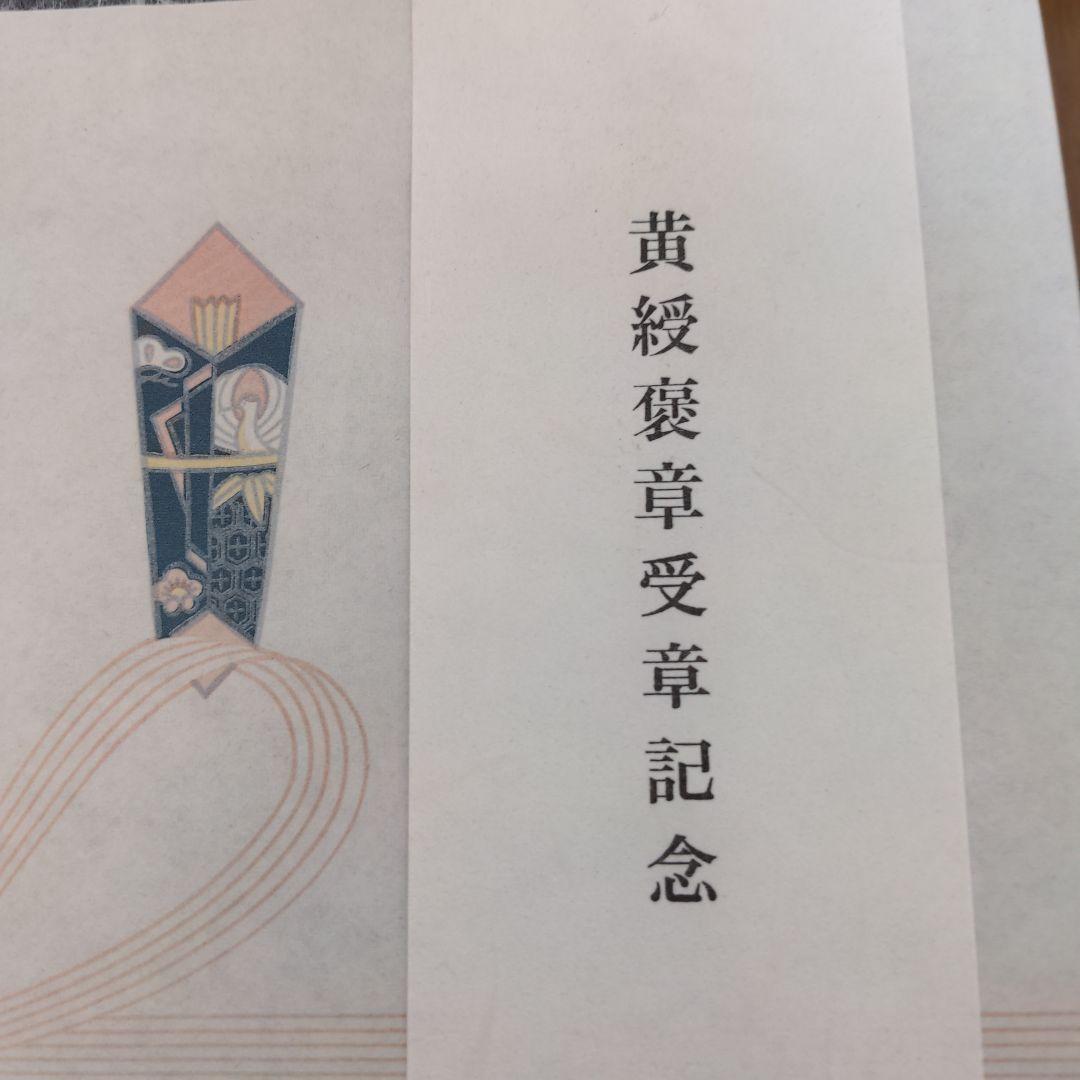 黄綬褒章受章記念